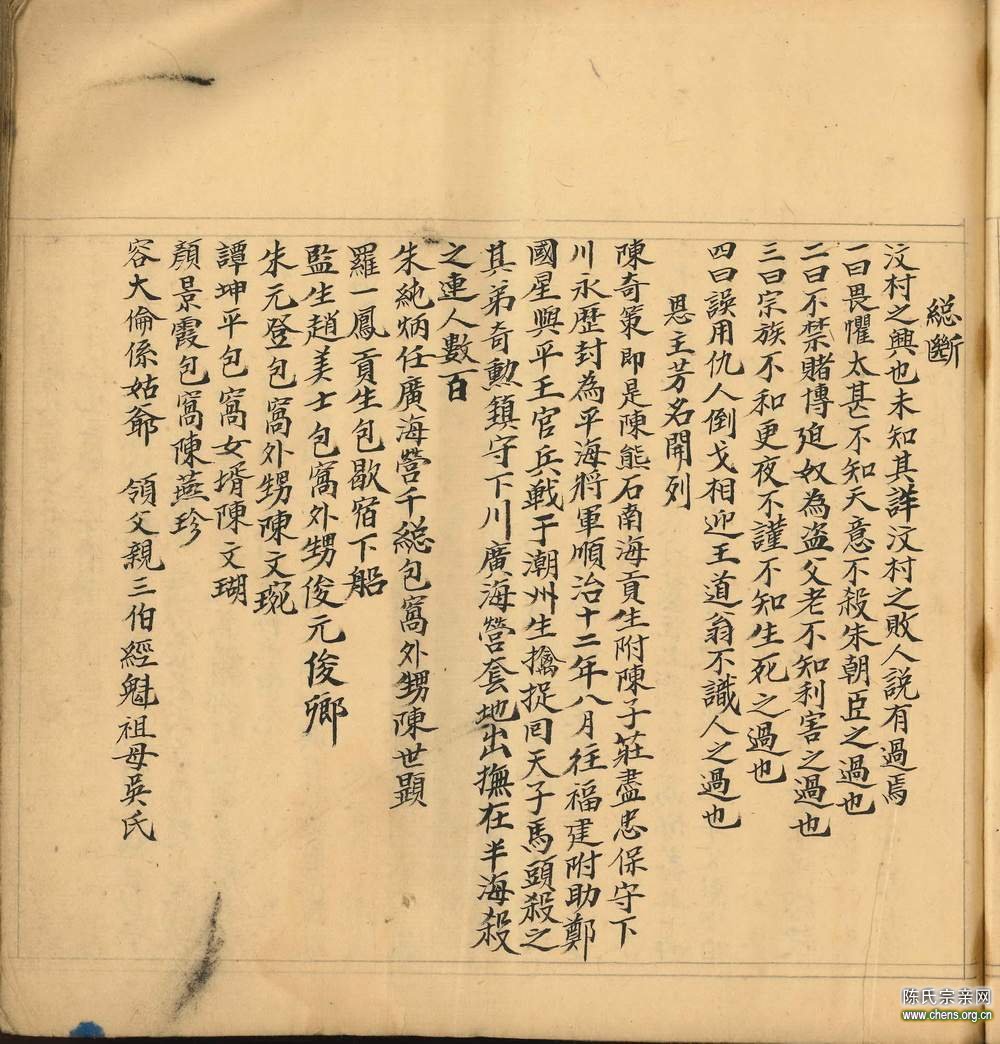 総斷
汶村之興也未知其詳汶村之敗人説有過焉
一曰畏懼太甚不知天意不殺朱朝臣之過也
二曰不禁賭博廹奴為盗父老不知利害之過也
三曰宗族不和更夜不謹不知生死之過也
四曰誤用仇人倒戈相迎王道翁不識人之過也
恩王芳名開列
陳奇策即是陳熊石南海貢生附陳子莊盡忠保守下
川永歷封為平海將軍順治十二年八月往福建附助鄭
國星與平王官兵戦于潮州生擒捉囘天子馬頭殺之
其弟奇勲鎮守下川廣海營套地出撫在半海殺
之連人數百
朱純炳任廣海營千総包窩外甥陳世顕
羅一鳳貢生包歇宿下船
監生趙美士包窩外甥俊元俊卿
朱元登包窩外甥陳文琬
譚坤平包窩女壻陳文瑚
顏景霞包窩陳燕珍
容大倫係姑爺 領父親三伯經魁祖母吳氏
陈氏宗亲网
www.chens.org.cn